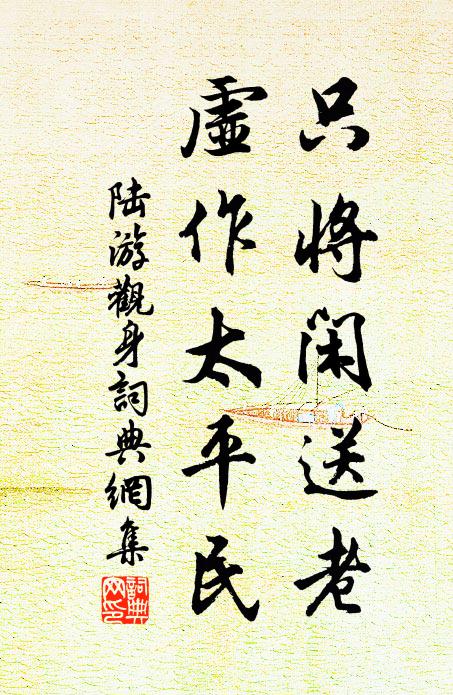 只將閑送老
虛作太平民
陸游觀身詞典網集
詞典網印